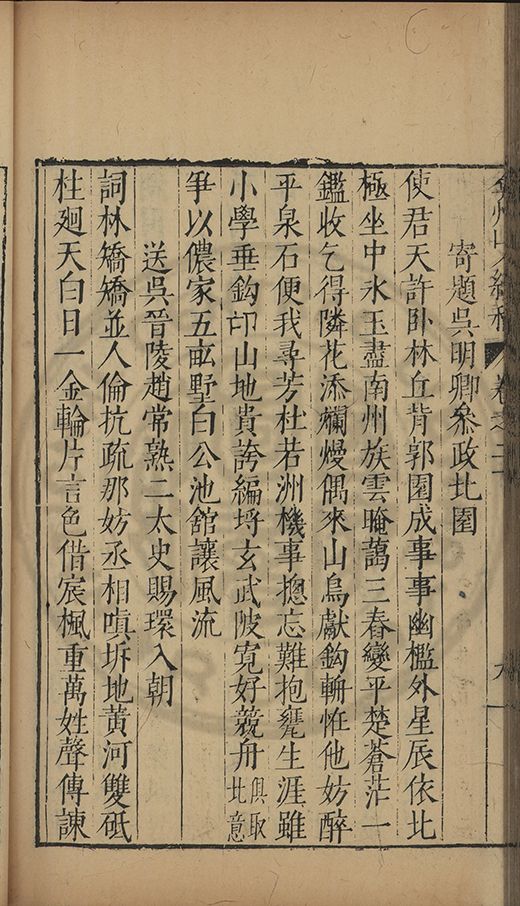 寄題吳明卿叅政北園
使君天許卧林丘背郭園成事事幽檻外星辰依北
極坐中冰玉盡南州族雲晻藹三春變平楚蒼茫一
鑑收乞得隣花添爛熳偶來山鳥獻鈎輈恠他妨醉
平泉石便我尋芳杜若洲機事摠忘難抱甕生涯雖
小學垂鈎卭山地貴誇編埒玄武陂寬好競舟俱取北意
爭以儂家五畝墅白公池館讓風流
送吳晉陵趙常熟二太史賜環入朝
詞林矯矯並人倫抗疏那妨丞相嗔坼地黃河雙砥
柱廻天白日一金輪片言色借宸楓重萬姓聲傳諫